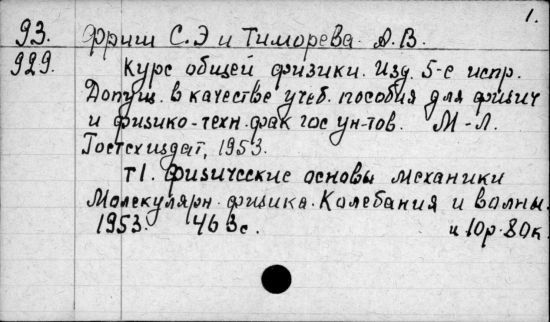 1.
93. Фриш С.Э и Тиморева А.В.
929. Курс общей физики. Изд. 5-е испр.
Допущ. в качестве учеб. пособия для физич
и физико-техн. фак гос ун-тов. М-Л.
Гостехиздат, 1953.
т 1. Физические основы механики
Молекулярн. физика. Колебания и волны.
1953. 463с. ц 10р. 80к